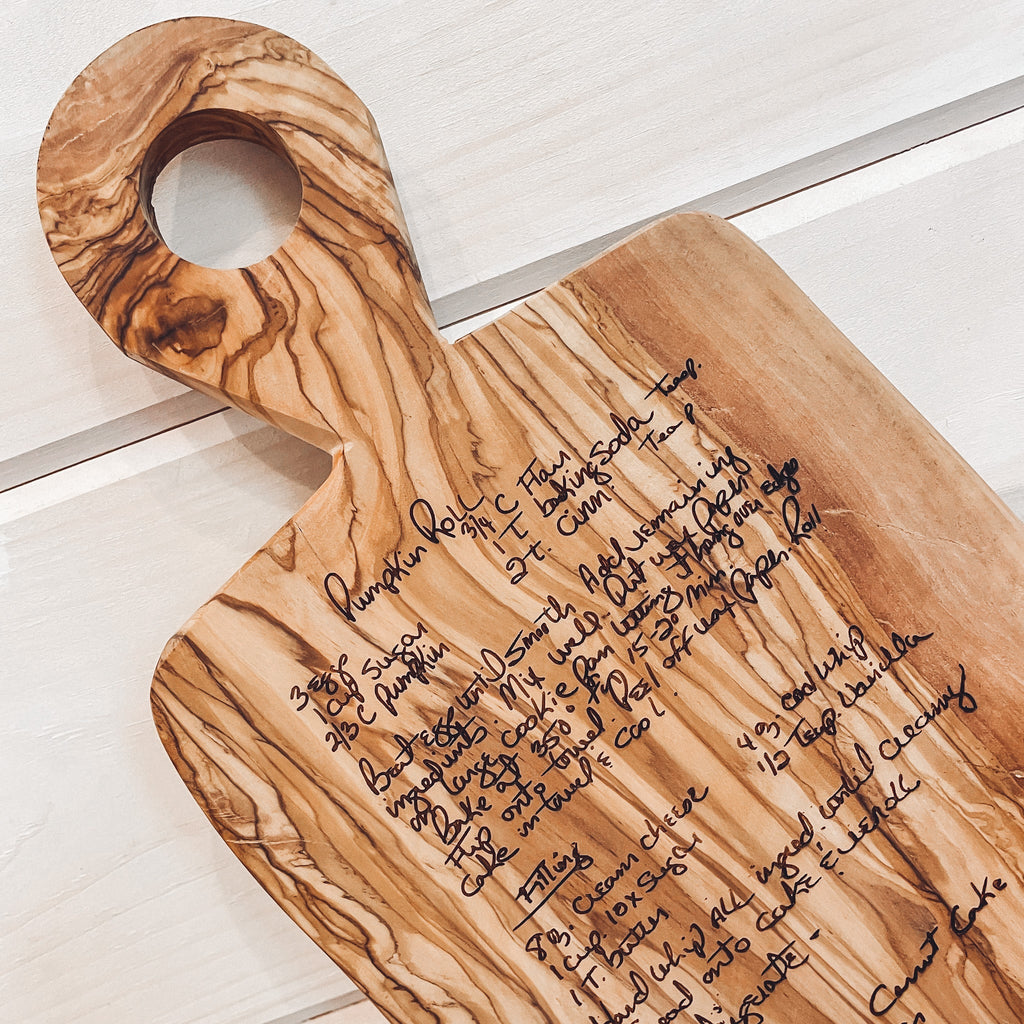 Pumpkin Roll
3 Eggs
1 Cup Sugar
2/3 C Pumpkin
3/4 C Flour
1 T baking Soda Teasp.
2 t. Cinn. Tea P
Beat Egg until Smooth Add remaining
ingredients. Mix well. Put wax paper
on large cookie pan letting it hang over Edges
Bake at 350° for 15-20 min.
Flip onto towel. PEEL off wax paper. Roll
Cake in towel & cool.
Filling
8 oz. Cream Cheese
1 Cup. 10x Sugar
1 T. butter
4 oz. Cool whip
1/2 Teasp. Vanilla
whip ALL ingred. until creamy
onto Cake & reroll
Carrot Cake